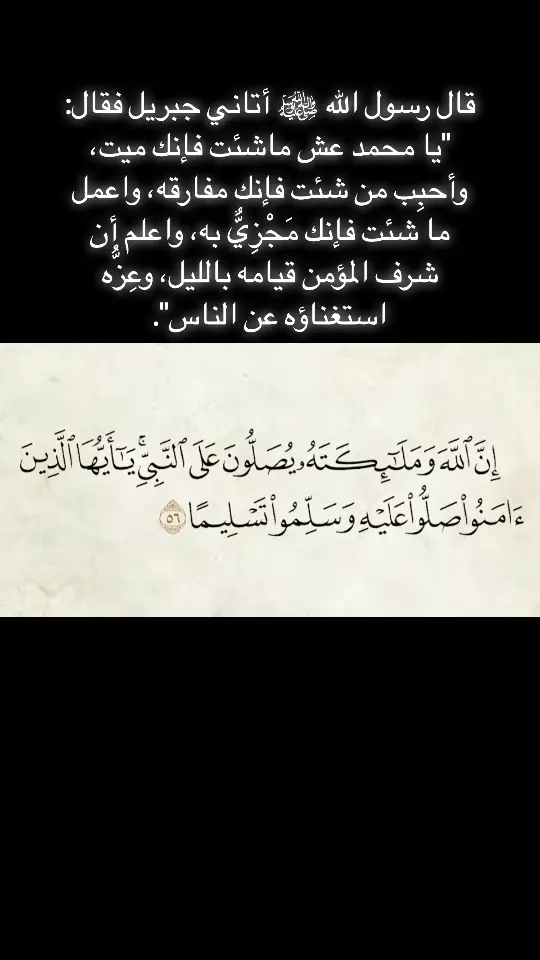 قال رسول الله ﷺ أتاني جبريل فقال:
"يا محمد عش ماشئت فإنك ميت،
وأحبِب من شئت فإنك مفارقه، واعمل
ما شئت فإنك مَجْزِيٌّ به، واعلم أن
شرف المؤمن قيامه بالليل، وعِزُّه
استغناؤه عن الناس".
إِنَّ ٱللَّهَ وَمَلَـٰٓئِكَتَهُۥ يُصَلُّونَ عَلَى ٱلنَّبِىِّۚ يَـٰٓأَيُّهَا ٱلَّذِينَ
ءَامَنُوا۟ صَلُّوا۟ عَلَيْهِ وَسَلِّمُوا۟ تَسْلِيمًا ٥٦